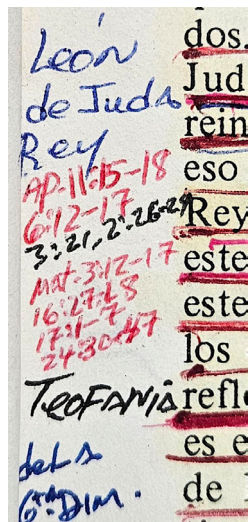 León
de Juda
Rey
AP. 11:15-18
6:12-17
3:21, 2:26-29
Mat. 3:12-17
16:27-28
17:1-7
TEOFANIA
de LA
6ta DIM.
dos
Jud
rein
eso
Rey
este
este
los
refle
es e
de